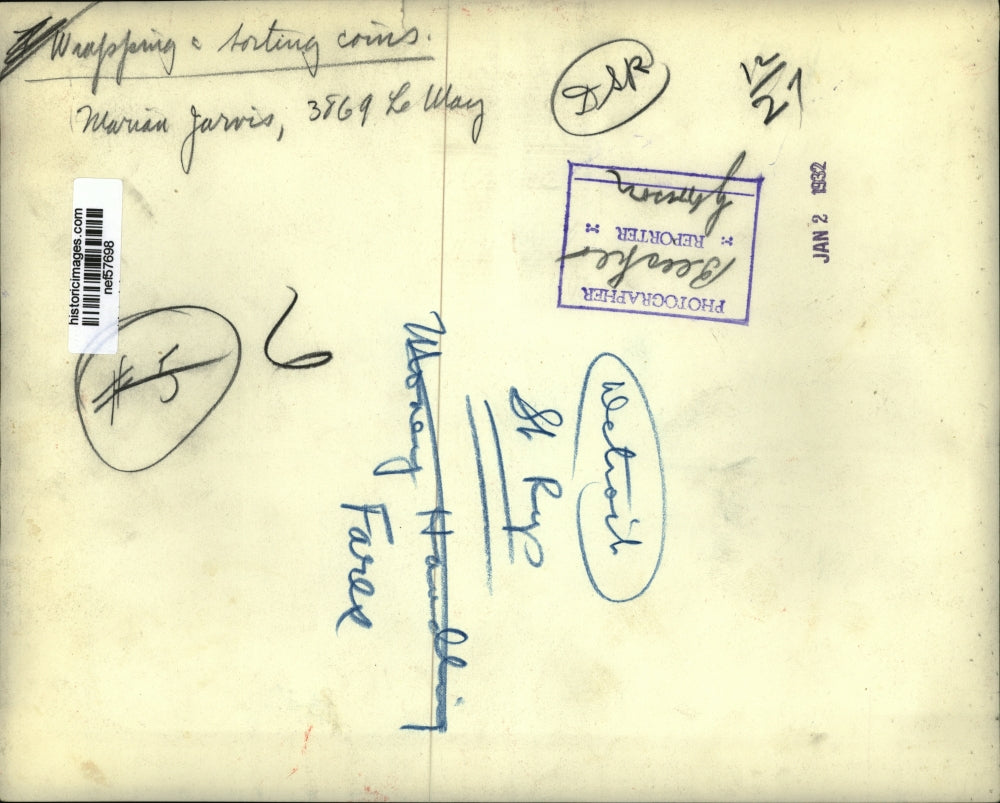 Wrapping & sorting coins.
Marian Jarvis, 3869 Le May
DSR
12/27
JAN 2 1932
PHOTOGRAPHER
Beecher
REPORTER
historicimages.com
nef57698
#5
6
Detroit
St Rys
Money Handling
Fares